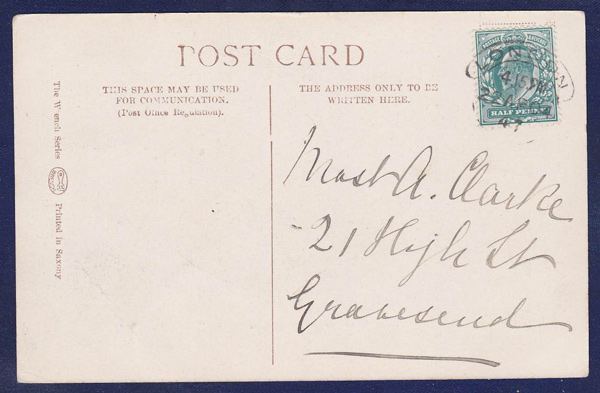 POST CARD
THIS SPACE MAY BE USED
FOR COMMUNICATION.
(Post Office Regulation).
THE ADDRESS ONLY TO BE
WRITTEN HERE.
The Wrench Series
Printed in Saxony
HALF PENNY
4.15 PM
07
Mast A. Clarke
21 High St
Gravesend